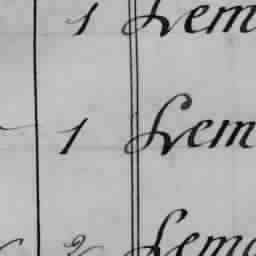 1 Lem
1 Lem
2 Lem